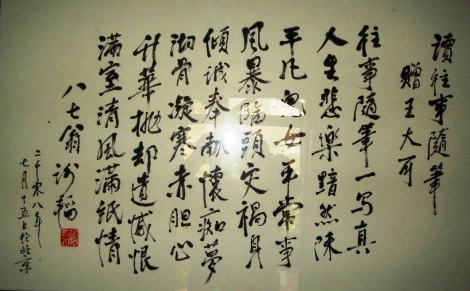 讀往事隨筆
贈王大可
往事隨筆一写真
人生悲樂黯然陳
平凡兒女平常事
風暴臨頭突禍身
傾誠奉献懷痴夢
沏骨凝寒赤胆心
升華抛却遺憾恨
滿室清風滿紙情
八七翁 谢韜
二千零八年
七月十五日於北京